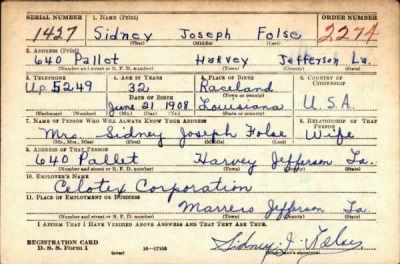 SERIAL NUMBER 1. NAME (Print) ORDER NUMBER
1427 Sidney Joseph Folse 2274
(First) (Middle) (Last)
2. ADDRESS (Print)
640 Pallet Harvey Jefferson La.
(Number and street or R. F. D. number) (Town) (County) (State)
3. TELEPHONE 4. AGE IN YEARS 5. PLACE OF BIRTH 6. COUNTRY OF CITIZENSHIP
Up. 5249 32 Raceland
DATE OF BIRTH (Town or county)
June 21 1908 Louisiana U.S.A.
(Exchange) (Number) (Mo.) (Day) (Yr.) (State or country)
7. NAME OF PERSON WHO WILL ALWAYS KNOW YOUR ADDRESS 8. RELATIONSHIP OF THAT PERSON
Mrs. Sidney Joseph Folse Wife
(Mr., Mrs., Miss) (First) (Middle) (Last)
9. ADDRESS OF THAT PERSON
640 Pallet Harvey Jefferson La.
(Number and street or R. F. D. number) (Town) (County) (State)
10. EMPLOYER'S NAME
Celotex Corporation
11. PLACE OF EMPLOYMENT OR BUSINESS
Marrero Jefferson La.
(Number and street or R. F. D. number) (Town) (County) (State)
I AFFIRM THAT I HAVE VERIFIED ABOVE ANSWERS AND THAT THEY ARE TRUE.
REGISTRATION CARD
D. S. S. Form 1 (over) 16—17105 Sidney J. Folse
(Registrant's signature)